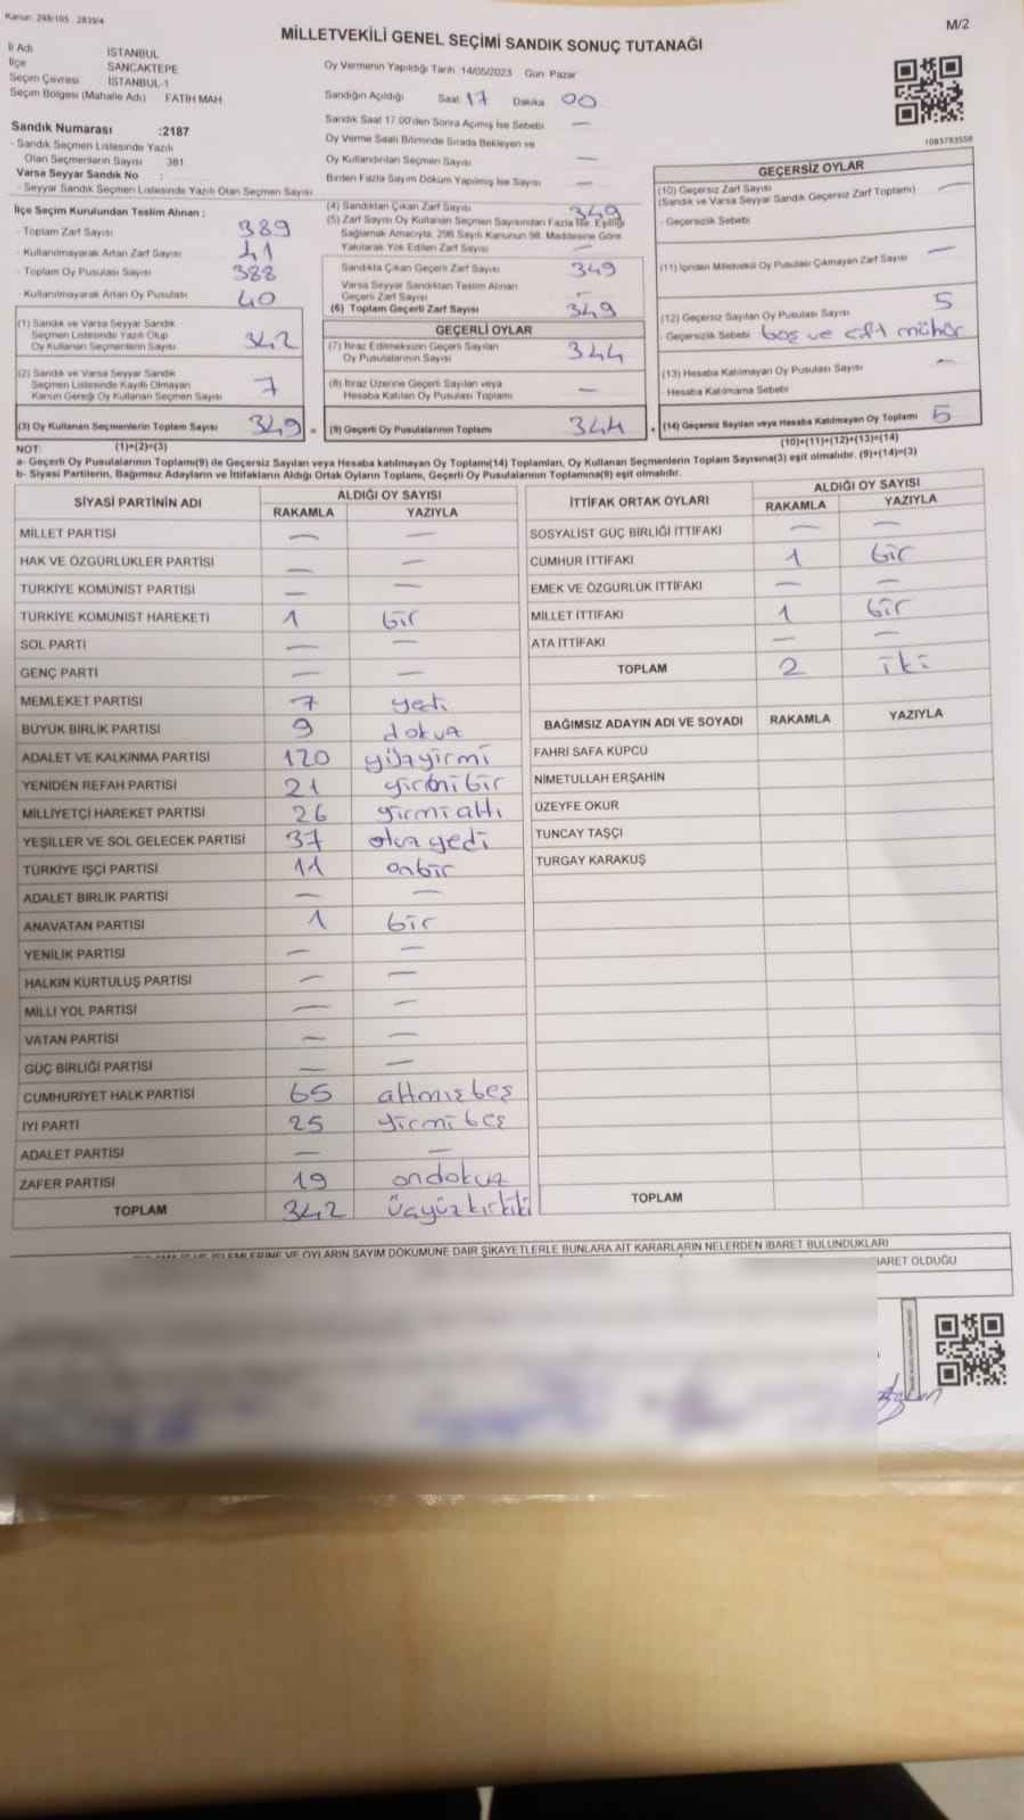 Kanun: 298/105 2839/4
M/2
MİLLETVEKİLİ GENEL SEÇİMİ SANDIK SONUÇ TUTANAĞI
İl Adı : İSTANBUL
İlçe : SANCAKTEPE
Seçim Çevresi : İSTANBUL-1
Seçim Bölgesi (Mahalle Adı) FATİH MAH
Sandık Numarası :2187
- Sandık Seçmen Listesinde Yazılı
Olan Seçmenlerin Sayısı 381
Varsa Seyyar Sandık No :
- Seyyar Sandık Seçmen Listesinde Yazılı Olan Seçmen Sayısı
Oy Vermenin Yapıldığı Tarih :14/05/2023 Gün: Pazar
Sandığın Açıldığı Saat 17 Dakika 00
Sandık Saat 17.00'den Sonra Açılmış İse Sebebi —
Oy Verme Saati Bitiminde Sırada Bekleyen ve
Oy Kullandırılan Seçmen Sayısı —
Birden Fazla Sayım Döküm Yapılmış İse Sayısı —
1083783558
İlçe Seçim Kurulundan Teslim Alınan :
- Toplam Zarf Sayısı 389
- Kullanılmayarak Artan Zarf Sayısı 41
- Toplam Oy Pusulası Sayısı 388
- Kullanılmayarak Artan Oy Pusulası 40
(1) Sandık ve Varsa Seyyar Sandık
Seçmen Listesinde Yazılı Olup
Oy Kullanan Seçmenlerin Sayısı 342
(2) Sandık ve Varsa Seyyar Sandık
Seçmen Listesinde Kayıtlı Olmayan
Kanun Gereği Oy Kullanan Seçmen Sayısı 7
(3) Oy Kullanan Seçmenlerin Toplam Sayısı 349 =
(4) Sandıktan Çıkan Zarf Sayısı 349
(5) Zarf Sayısı Oy Kullanan Seçmen Sayısından Fazla İse, Eşitliği
Sağlamak Amacıyla, 298 Sayılı Kanunun 98. Maddesine Göre
Yakılarak Yok Edilen Zarf Sayısı —
Sandıkta Çıkan Geçerli Zarf Sayısı 349
Varsa Seyyar Sandıktan Teslim Alınan
Geçerli Zarf Sayısı —
(6) Toplam Geçerli Zarf Sayısı 349
GEÇERLİ OYLAR
(7) İtiraz Edilmeksizin Geçerli Sayılan
Oy Pusulalarının Sayısı 344
(8) İtiraz Üzerine Geçerli Sayılan veya
Hesaba Katılan Oy Pusulası Toplamı —
(9) Geçerli Oy Pusulalarının Toplamı 344 +
GEÇERSİZ OYLAR
(10) Geçersiz Zarf Sayısı
(Sandık ve Varsa Seyyar Sandık Geçersiz Zarf Toplamı) —
- Geçersizlik Sebebi
(11) İçinden Milletvekili Oy Pusulası Çıkmayan Zarf Sayısı —
(12) Geçersiz Sayılan Oy Pusulası Sayısı 5
- Geçersizlik Sebebi boş ve çift mühür
(13) Hesaba Katılmayan Oy Pusulası Sayısı —
- Hesaba Katılmama Sebebi
(14) Geçersiz Sayılan veya Hesaba Katılmayan Oy Toplamı 5
NOT: (1)+(2)=(3) (10)+(11)+(12)+(13)=(14)
a- Geçerli Oy Pusulalarının Toplamı(9) ile Geçersiz Sayılan veya Hesaba katılmayan Oy Toplamı(14) Toplamları, Oy Kullanan Seçmenlerin Toplam Sayısına(3) eşit olmalıdır. (9)+(14)=(3)
b- Siyasi Partilerin, Bağımsız Adayların ve İttifakların Aldığı Ortak Oyların Toplamı, Geçerli Oy Pusulalarının Toplamına(9) eşit olmalıdır.
SİYASİ PARTİNİN ADI ALDIĞI OY SAYISI
RAKAMLA YAZIYLA
MİLLET PARTİSİ — —
HAK VE ÖZGÜRLÜKLER PARTİSİ — —
TÜRKİYE KOMÜNİST PARTİSİ — —
TÜRKİYE KOMÜNİST HAREKETİ 1 bir
SOL PARTİ — —
GENÇ PARTİ — —
MEMLEKET PARTİSİ 7 yedi
BÜYÜK BİRLİK PARTİSİ 9 dokuz
ADALET VE KALKINMA PARTİSİ 120 yüzyirmi
YENİDEN REFAH PARTİSİ 21 yirmibir
MİLLİYETÇİ HAREKET PARTİSİ 26 yirmialtı
YEŞİLLER VE SOL GELECEK PARTİSİ 37 otuzyedi
TÜRKİYE İŞÇİ PARTİSİ 11 onbir
ADALET BİRLİK PARTİSİ — —
ANAVATAN PARTİSİ 1 bir
YENİLİK PARTİSİ — —
HALKIN KURTULUŞ PARTİSİ — —
MİLLİ YOL PARTİSİ — —
VATAN PARTİSİ — —
GÜÇ BİRLİĞİ PARTİSİ — —
CUMHURİYET HALK PARTİSİ 65 altmışbeş
İYİ PARTİ 25 yirmibeş
ADALET PARTİSİ — —
ZAFER PARTİSİ 19 ondokuz
TOPLAM 342 Üçyüzkırkiki
İTTİFAK ORTAK OYLARI ALDIĞI OY SAYISI
RAKAMLA YAZIYLA
SOSYALİST GÜÇ BİRLİĞİ İTTİFAKI — —
CUMHUR İTTİFAKI 1 bir
EMEK VE ÖZGÜRLÜK İTTİFAKI — —
MİLLET İTTİFAKI 1 bir
ATA İTTİFAKI — —
TOPLAM 2 iki
BAĞIMSIZ ADAYIN ADI VE SOYADI RAKAMLA YAZIYLA
FAHRİ SAFA KÜPCÜ
NİMETULLAH ERŞAHİN
ÜZEYFE OKUR
TUNCAY TAŞÇI
TURGAY KARAKUŞ
TOPLAM
İŞLEMLERİNE VE OYLARIN SAYIM DÖKÜMÜNE DAİR ŞİKAYETLERLE BUNLARA AİT KARARLARIN NELERDEN İBARET BULUNDUKLARI
İBARET OLDUĞU